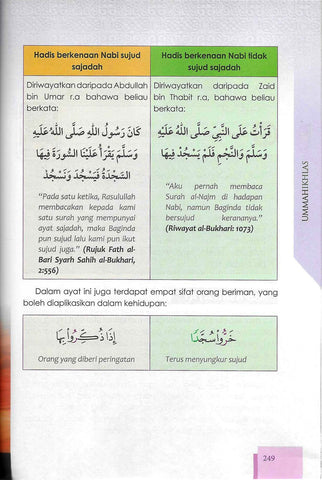 Hadis berkenaan Nabi sujud
sajadah
Diriwayatkan daripada Abdullah
bin Umar r.a bahawa beliau
berkata:
كَانَ رَسُولُ اللَّهِ صَلَّى اللَّهُ عَلَيْهِ
وَسَلَّمَ يَقْرَأُ عَلَيْنَا السُّورَةَ فِيهَا
السَّجْدَةُ فَيَسْجُدُ وَنَسْجُدُ
"Pada satu ketika, Rasulullah
membacakan kepada kami
satu surah yang mempunyai
ayat sajadah, maka Baginda
pun sujud lalu kami pun ikut
sujud juga." (Rujuk Fath al-
Bari Syarh Sahih al-Bukhari,
2:556)
Hadis berkenaan Nabi tidak
sujud sajadah
Diriwayatkan daripada Zaid
bin Thabit r.a, bahawa beliau
berkata:
قَرَأْتُ عَلَى النَّبِيِّ صَلَّى اللَّهُ عَلَيْهِ
وَسَلَّمَ وَالنَّجْمِ فَلَمْ يَسْجُدْ فِيهَا
"Aku pernah membaca
Surah al-Najm di hadapan
Nabi, namun Baginda tidak
bersujud kerananya."
(Riwayat al-Bukhari: 1073)
Dalam ayat ini juga terdapat empat sifat orang beriman, yang
boleh diaplikasikan dalam kehidupan:
إِذَا ذُكِّرُوا۟ بِهَا
Orang yang diberi peringatan
خَرُّوا۟ سُجَّدًا
Terus menyungkur sujud
UMMAHIKHLAS
249